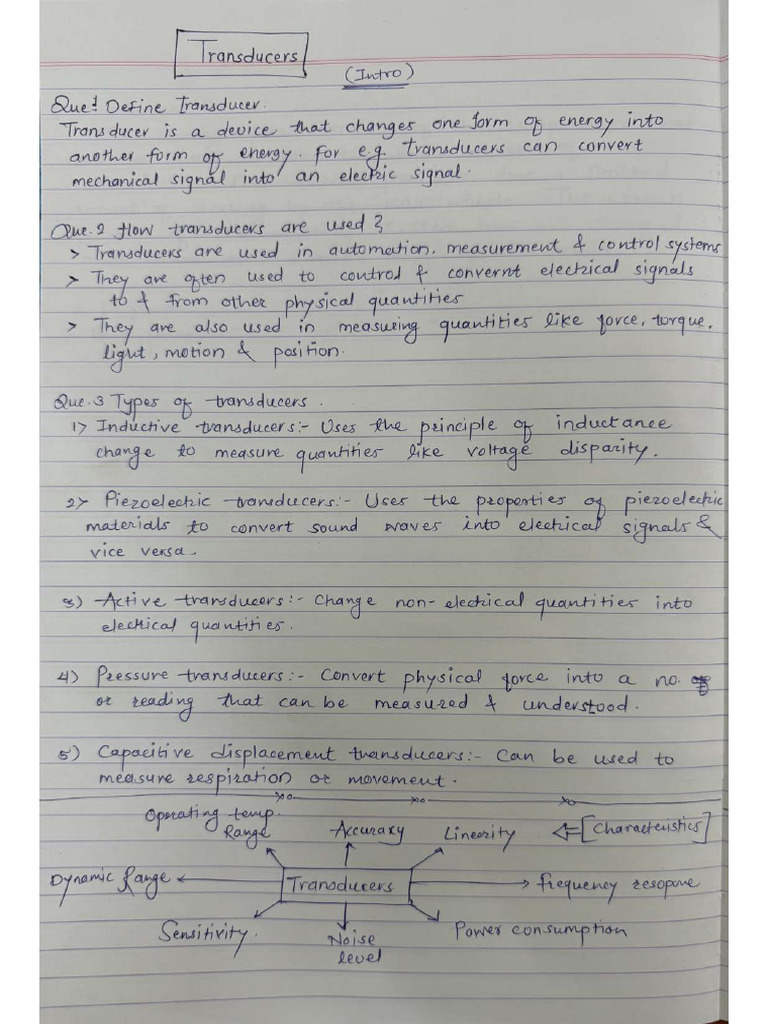 Transducers
(Intro)
Que.1 Define Transducer.
Transducer is a device that changes one form of energy into
another form of energy. For e.g. transducers can convert
mechanical signal into an electric signal.
Que.2 How transducers are used?
> Transducers are used in automation, measurement & control systems
> They are often used to control & convernt electrical signals
to & from other physical quantities
> They are also used in measuring quantities like force, torque,
light, motion & position.
Que.3 Types of transducers.
1) Inductive transducers:- Uses the principle of inductance
change to measure quantities like voltage disparity.
2) Piezoelectric transducers:- Uses the properties of piezoelectric
materials to convert sound waves into electrical signals &
vice versa.
3) Active transducers:- Change non-electrical quantities into
electrical quantities.
4) Pressure transducers:- Convert physical force into a no.
or reading that can be measured & understood.
5) Capacitive displacement transducers:- Can be used to
measure respiration or movement.
Operating temp. Range
Accuracy
Linearity
[Characteristics]
Dynamic Range
Transducers
frequency resopone
Sensitivity.
Noise level
Power consumption